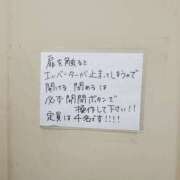 扉を触ると
エレベーターが止まってしまうので
開ける 閉めるは
必ず開閉ボタンで
操作して下さい!!
定員は4名です!!!!